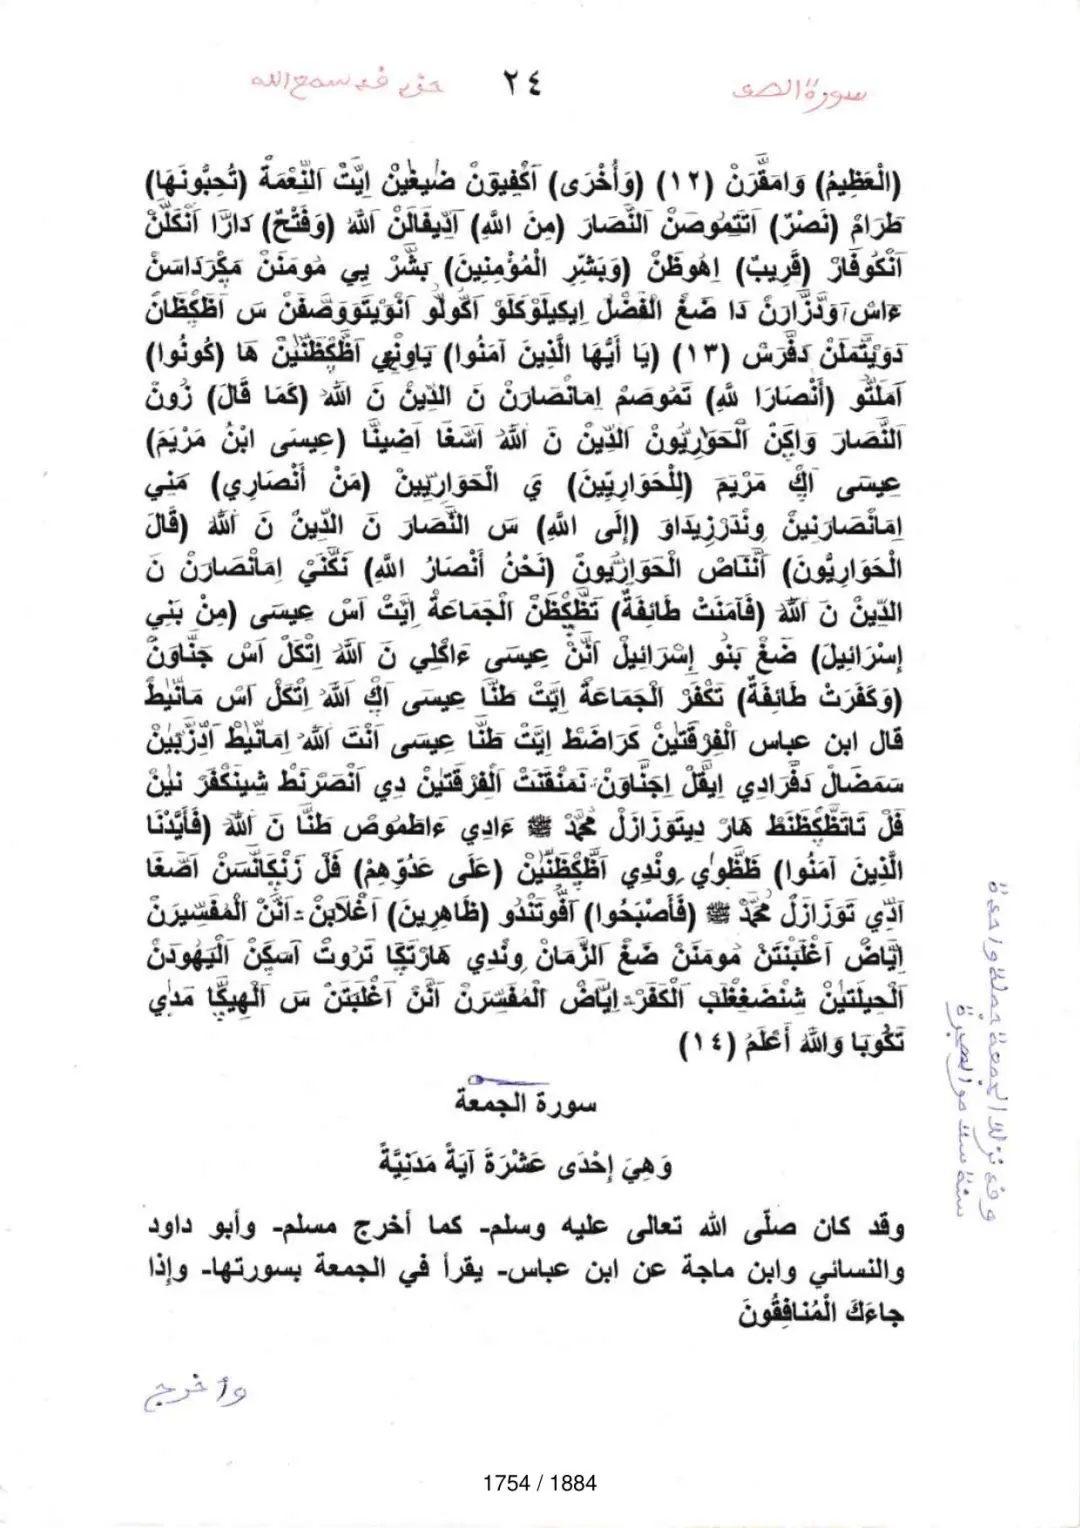 سورة الصف ٢٤ حزب قد سمع الله
(الْعَظِيمُ) وَامَقَّرَنْ (١٢) (وَأُخْرَى) اَكْفِيوَنْ ضَيغَيِنْ اِيَّتْ النِّعْمَةْ (تُحِبُّونَهَا)
طَرَامْ (نَصْرٌ) اَتَتِمُوصَنْ النَّصَارَ (مِنَ اللَّهِ) اَدِّيفَالَنْ اَللَّهُ (وَفَتْحٌ) دَارَّا اَنْكَلَّنْ
اَنْكُوفَارْ (قَرِيبٌ) اِهُوظَنْ (وَبَشِّرِ الْمُؤْمِنِينَ) بَشَّرْ يِي مُومَنَنْ مَكِرَدَاسَنْ
ءَاسْ اَوَدَّزَّارَنْ دَا ضَغْ الْفَضْلْ اِيكِيلَوْكَلَوْ اَكُولُو اَنْوِيتَوَوَصَّفَنْ سَ اَظَكِظَانْ
دَوَيَتَّمَلَنْ دَفَّرَسْ (١٣) (يَا أَيُّهَا الَّذِينَ آمَنُوا) يَاوِنْدِي اَظَّكِظَنَيِنْ هَا (كُونُوا)
اَمَلَتُّو (أَنْصَارًا لِلَّهِ) تَمُوصَمْ اِمَانْصَارَنْ نَ الدِّينْ نَ اللَّهُ (كَمَا قَالَ) زُونْ
النَّصَارَ وَاِكَنْ اَلْحَوَارِيُّونْ الدِّينْ نَ اَللَّهُ اَسْغَا اَضِينَّا (عِيسَى ابْنُ مَرْيَمَ)
عِيسَى اَكْ مَرْيَمَ (لِلْحَوَارِيِّينَ) يِ اَلْحَوَارِيِّينْ (مَنْ أَنْصَارِي) مَنِي
اِمَانْصَارَنِينْ وِنْدَرْزِيدَاوَ (إِلَى اللَّهِ) سَ النَّصَارَ نَ الدِّينْ نَ اَللَّهُ (قَالَ
الْحَوَارِيُّونَ) اَنَّنَاصْ اَلْحَوَارِيُّونْ (نَحْنُ أَنْصَارُ اللَّهِ) نَكَّنَيْ اِمَانْصَارَنْ نَ
الدِّينْ نَ اللَّهُ (فَآمَنَتْ طَائِفَةٌ) تَظَّكِظَنْ اَلْجَمَاعَةْ اِيَّتْ اَسْ عِيسَى (مِنْ بَنِي
إِسْرَائِيلَ) ضَغْ بَنُو إِسْرَائِيلْ اَنَّنْ عِيسَى ءَاكْلِي نَ اَللَّهُ اِتْكَلْ اَسْ جَنَّاوَنْ
(وَكَفَرَتْ طَائِفَةٌ) تَكْفَرْ اَلْجَمَاعَةْ اِيَّتْ طَنَّا عِيسَى اَكْ اَللَّهُ اِتْكَلْ اَسْ مَانْيَطْ
قال ابن عباس اَلْفِرْقَتَيِنْ كَرَاضَطْ اِيَّتْ طَنَّا عِيسَى اَنْتَ اَللَّهُ اِمَانِّيطْ اَدِزَّبَيِنْ
سَمَضَالْ دَفَّرَادِي اِيقَلْ اِجَنَّاوَنْ نَمَنْقَتَتْ اَلْفِرْقَتَيِنْ دِي اَنْصَرْنَطْ شِينَكْفَرْ نَيِنْ
فَلْ تَاتَظَّكِظَنَطْ هَارْ دِيتَوَزَازَلْ مُحَمَّدْ ﷺ ءَادِي ءَاطَمُوصْ طَنَّا نَ اَللَّهُ (فَأَيَّدْنَا
الَّذِينَ آمَنُوا) طَظَّوايْ وِنْدِي اَظَّكِظَنَّيِنْ (عَلَى عَدُوِّهِمْ) فَلْ زَنْكَانَسَنْ اَصَّغَا
اَدِّي تَوَزَازَلْ مُحَمَّدْ ﷺ (فَأَصْبَحُوا) اَفُّوتَنْدُو (ظَاهِرِينَ) اَغْلَابَنْ اَنَّنْ اَلْمُفَسِّيرَنْ
اِيَّاضْ اَغْلَبَنْتَنْ مُومَنَنْ ضَغْ الزَّمَانْ وِنْدِي هَارْتَكَا تَرُوتْ اَسِكَنْ اَلْيَهُودَنْ
اَلْحِيلَتَيِنْ شِنْضَغْغَلَبْ اَلْكَفَرْ اِيَّاضْ اَلْمُفَسِّرَنْ اَنَّنْ اَغْلَبَتَنْ سَ اَلْهِيكَّا مَدَي
تَكُوبَا وَاللَّهُ أَعْلَمُ (١٤)
سورة الجمعة
وَهِيَ إِحْدَى عَشْرَةَ آيَةً مَدَنِيَّةً
وقد كان صلّى الله تعالى عليه وسلم- كما أخرج مسلم- وأبو داود
والنسائي وابن ماجة عن ابن عباس- يقرأ في الجمعة بسورتها- وإذا
جاءَكَ الْمُنافِقُونَ
وقد نزلت الجمعة جملة واحدة
سنة ست من الهجرة
وأخرج
1754 / 1884